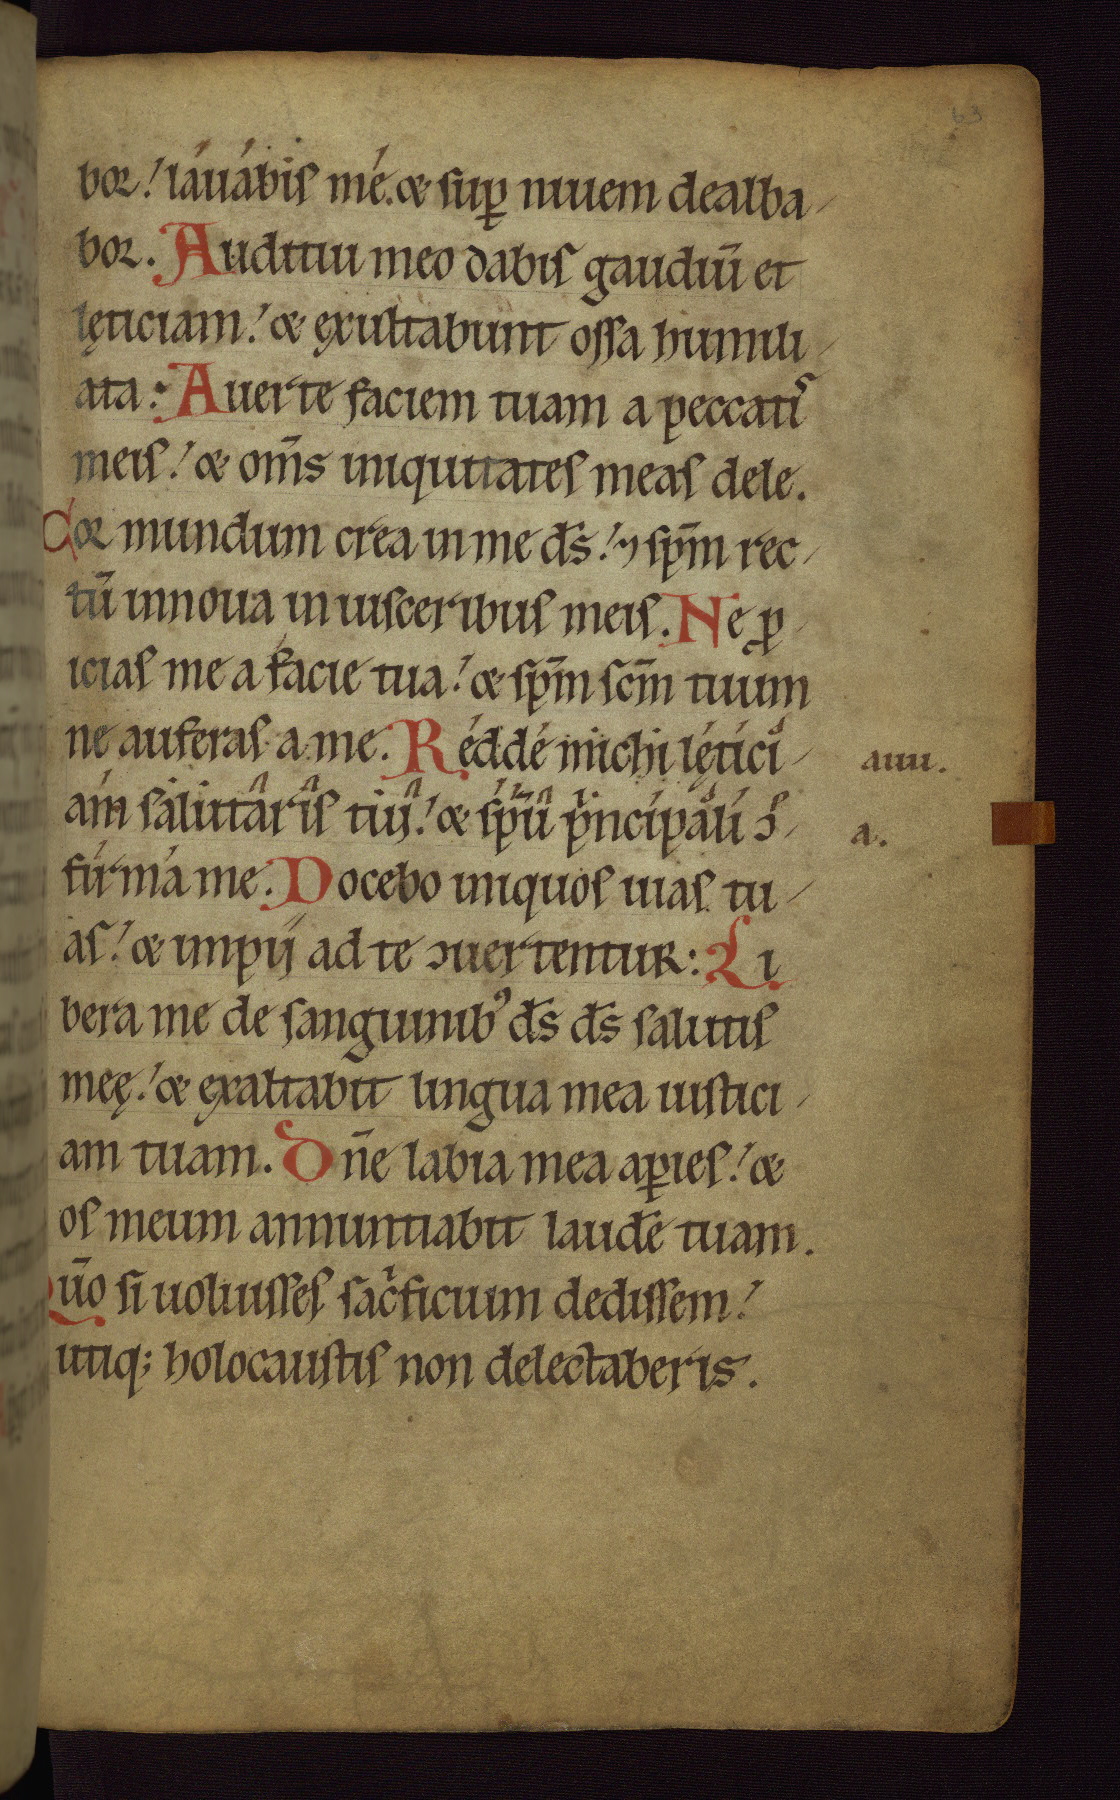 63
bor! lauabis me. & sup̱ niuem dealba-
bor. Auditui meo dabis gaudiū et
lęticiam! & exultabunt ossa humili-
ata: Auerte faciem tuam a peccatis
meis! & om̄s iniquitates meas dele.
Cor mundum crea in me ds̄! ⁊ sp̄m rec-
tū innoua in uisceribus meis. Ne ꝓ-
icias me a facie tua! & sp̄m sc̄m tuum
ne auferas a me. Redde michi lętici- auii.
am salutaris tui! & sp̄ū pⁱncipali ↄ- a.
firma me. Docebo iniquos uias tu-
as! & impii ad te ↄuertentur: Li
bera me de sanguinibꝰ ds̄ ds̄ salutis
meę! & exaltabit lingua mea iustici-
am tuam. Dn̄e labia mea aꝑies! &
os meum annuntiabit laudē tuam.
Qūo si uoluisses sacⁱficium dedissem!
utiq; holocaustis non delectaberis.